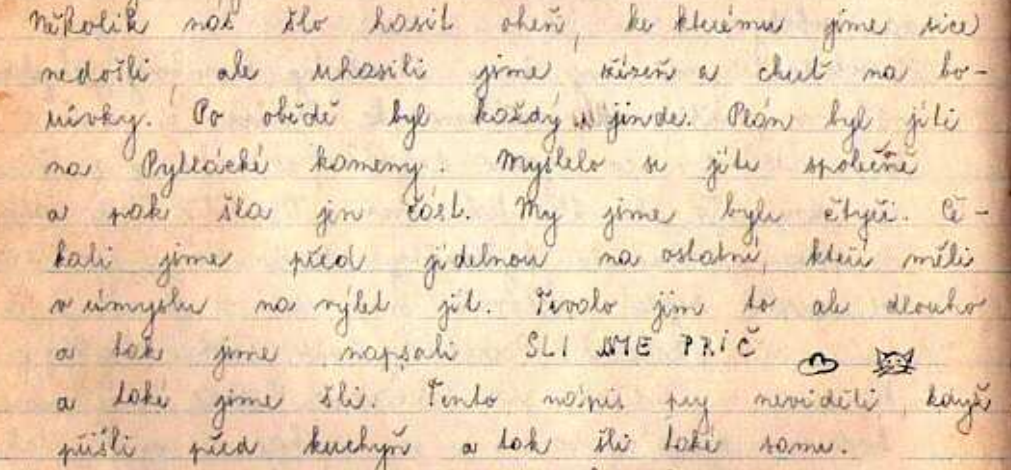 Několik nás šlo hasit oheň, ke kterému jsme sice
nedošli, ale uhasili jsme žízeň a chuť na bo-
růvky. Po obědě byl každý jinde. Plán byl jíti
na Pytlácké kameny. Myslelo se jíti společně
a pak šla jen část. My jsme byli čtyři. Če-
kali jsme před jídelnou na ostatní, kteří měli
v úmyslu na výlet jít. Trvalo jim to ale dlouho
a tak jsme napsali ŠLI JSME PRIČ
a také jsme šli. Tento nápis prý neviděli, když
přišli před kuchyň a tak šli také samy.